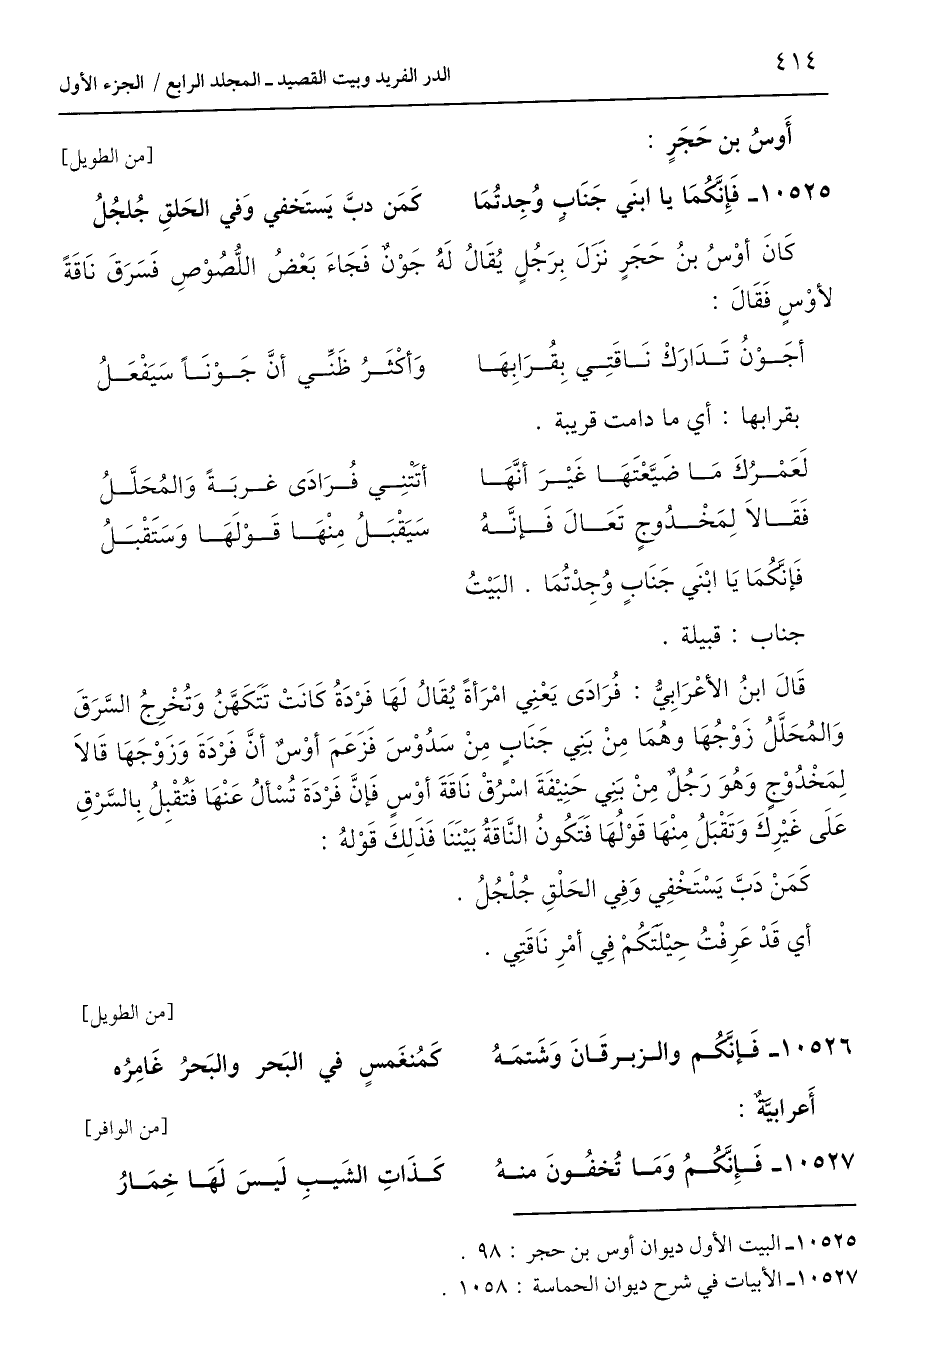 ٤١٤
الدر الفريد وبيت القصيد ـ المجلد الرابع / الجزء الأول
أَوسُ بن حَجَرٍ :
[من الطويل]
١٠٥٢٥ـ فَإِنَّكُمَا يا ابنَي جَنَابٍ وُجِدتُمَا كَمَن دبَّ يَستَخفي وَفي الحَلقِ جُلجُلُ
كَانَ أوْسُ بنُ حَجَرٍ نَزَلَ بِرَجُلٍ يُقَالُ لَهُ جَوْنٌ فَجَاءَ بَعْضُ اللُّصُوْصِ فَسَرَقَ نَاقَةً
لأوْسٍ فَقَالَ :
أجَــوْنُ تَــدَارَكْ نَــاقَتِــي بِقُــرَابِهَــا وَأكْثَــرُ ظَنِّــي أنَّ جَــوْنَــاً سَيَفْعَــلُ
بقرابها : أي ما دامت قريبة .
لَعَمْــرُكَ مَــا ضَيَّعْتَهَــا غَيْــرَ أنَّهَــا أتَتْنِــي فُــرَادَى غــربَــةً وَالمُحَلَّــلُ
فَقَــالاَ لِمَخْــدُوجٍ تَعَــالَ فَــإِنَّــهُ سَيَقْبَــلُ مِنْهَــا قَــوْلَهَــا وَسَتَقْبَــلُ
فَإنَّكُمَا يَا ابْنَي جَنَابٍ وُجِدْتُمَا . البَيْتُ
جناب : قبيلة .
قَالَ ابنُ الأعْرَابِيُّ : فُرَادَى يَعْنِي امْرَأةً يُقَالُ لَهَا فَرْدَةُ كَانَتْ تَتَكَهَّنُ وَتُخْرِجُ السَّرَقَ
وَالمُحَلَّلُ زَوْجُهَا وهُمَا مِنْ بَنِي جَنَابٍ مِنْ سَدُوْسَ فَزَعَمَ أوْسٌ أنَّ فَرْدَةَ وَزَوْجَهَا قَالاَ
لِمَخْدُوْجٍ وَهُوَ رَجُلٌ مِنْ بَنِي حَنِيْفَةَ اسْرُقْ نَاقَةَ أوْسٍ فَإنَّ فَرْدَةَ تُسْألُ عَنْهَا فَتُقْبِلُ بِالسَّرْقِ
عَلَى غَيْرِكَ وَتَقْبَلُ مِنْهَا قَوْلُهَا فَتَكُونُ النَّاقَةُ بَيْنَنَا فَذَلِكَ قَوْلهُ :
كَمَنْ دَبَّ يَسْتَخْفِي وَفِي الحَلْقِ جُلْجُلُ .
أي قَدْ عَرِفْتُ حِيْلَتَكُمْ فِي أمْرِ نَاقَتِي .
[من الطويل]
١٠٥٢٦ـ فَــإنَّكُــم والــزبــرقَــانَ وَشَتمَــهُ كَمُنغَمسٍ في البَحر والبَحرُ غَامِرُه
أَعرابيَّةٌ :
[من الوافر]
١٠٥٢٧ـ فَــإِنَّكُــمُ وَمَــا تُخفُــونَ منــهُ كَــذَاتِ الشَيــبِ لَيــسَ لَهَــا خِمَــارُ
١٠٥٢٥ـ البيت الأول ديوان أوس بن حجر : ٩٨ .
١٠٥٢٧ـ الأبيات في شرح ديوان الحماسة : ١٠٥٨ .